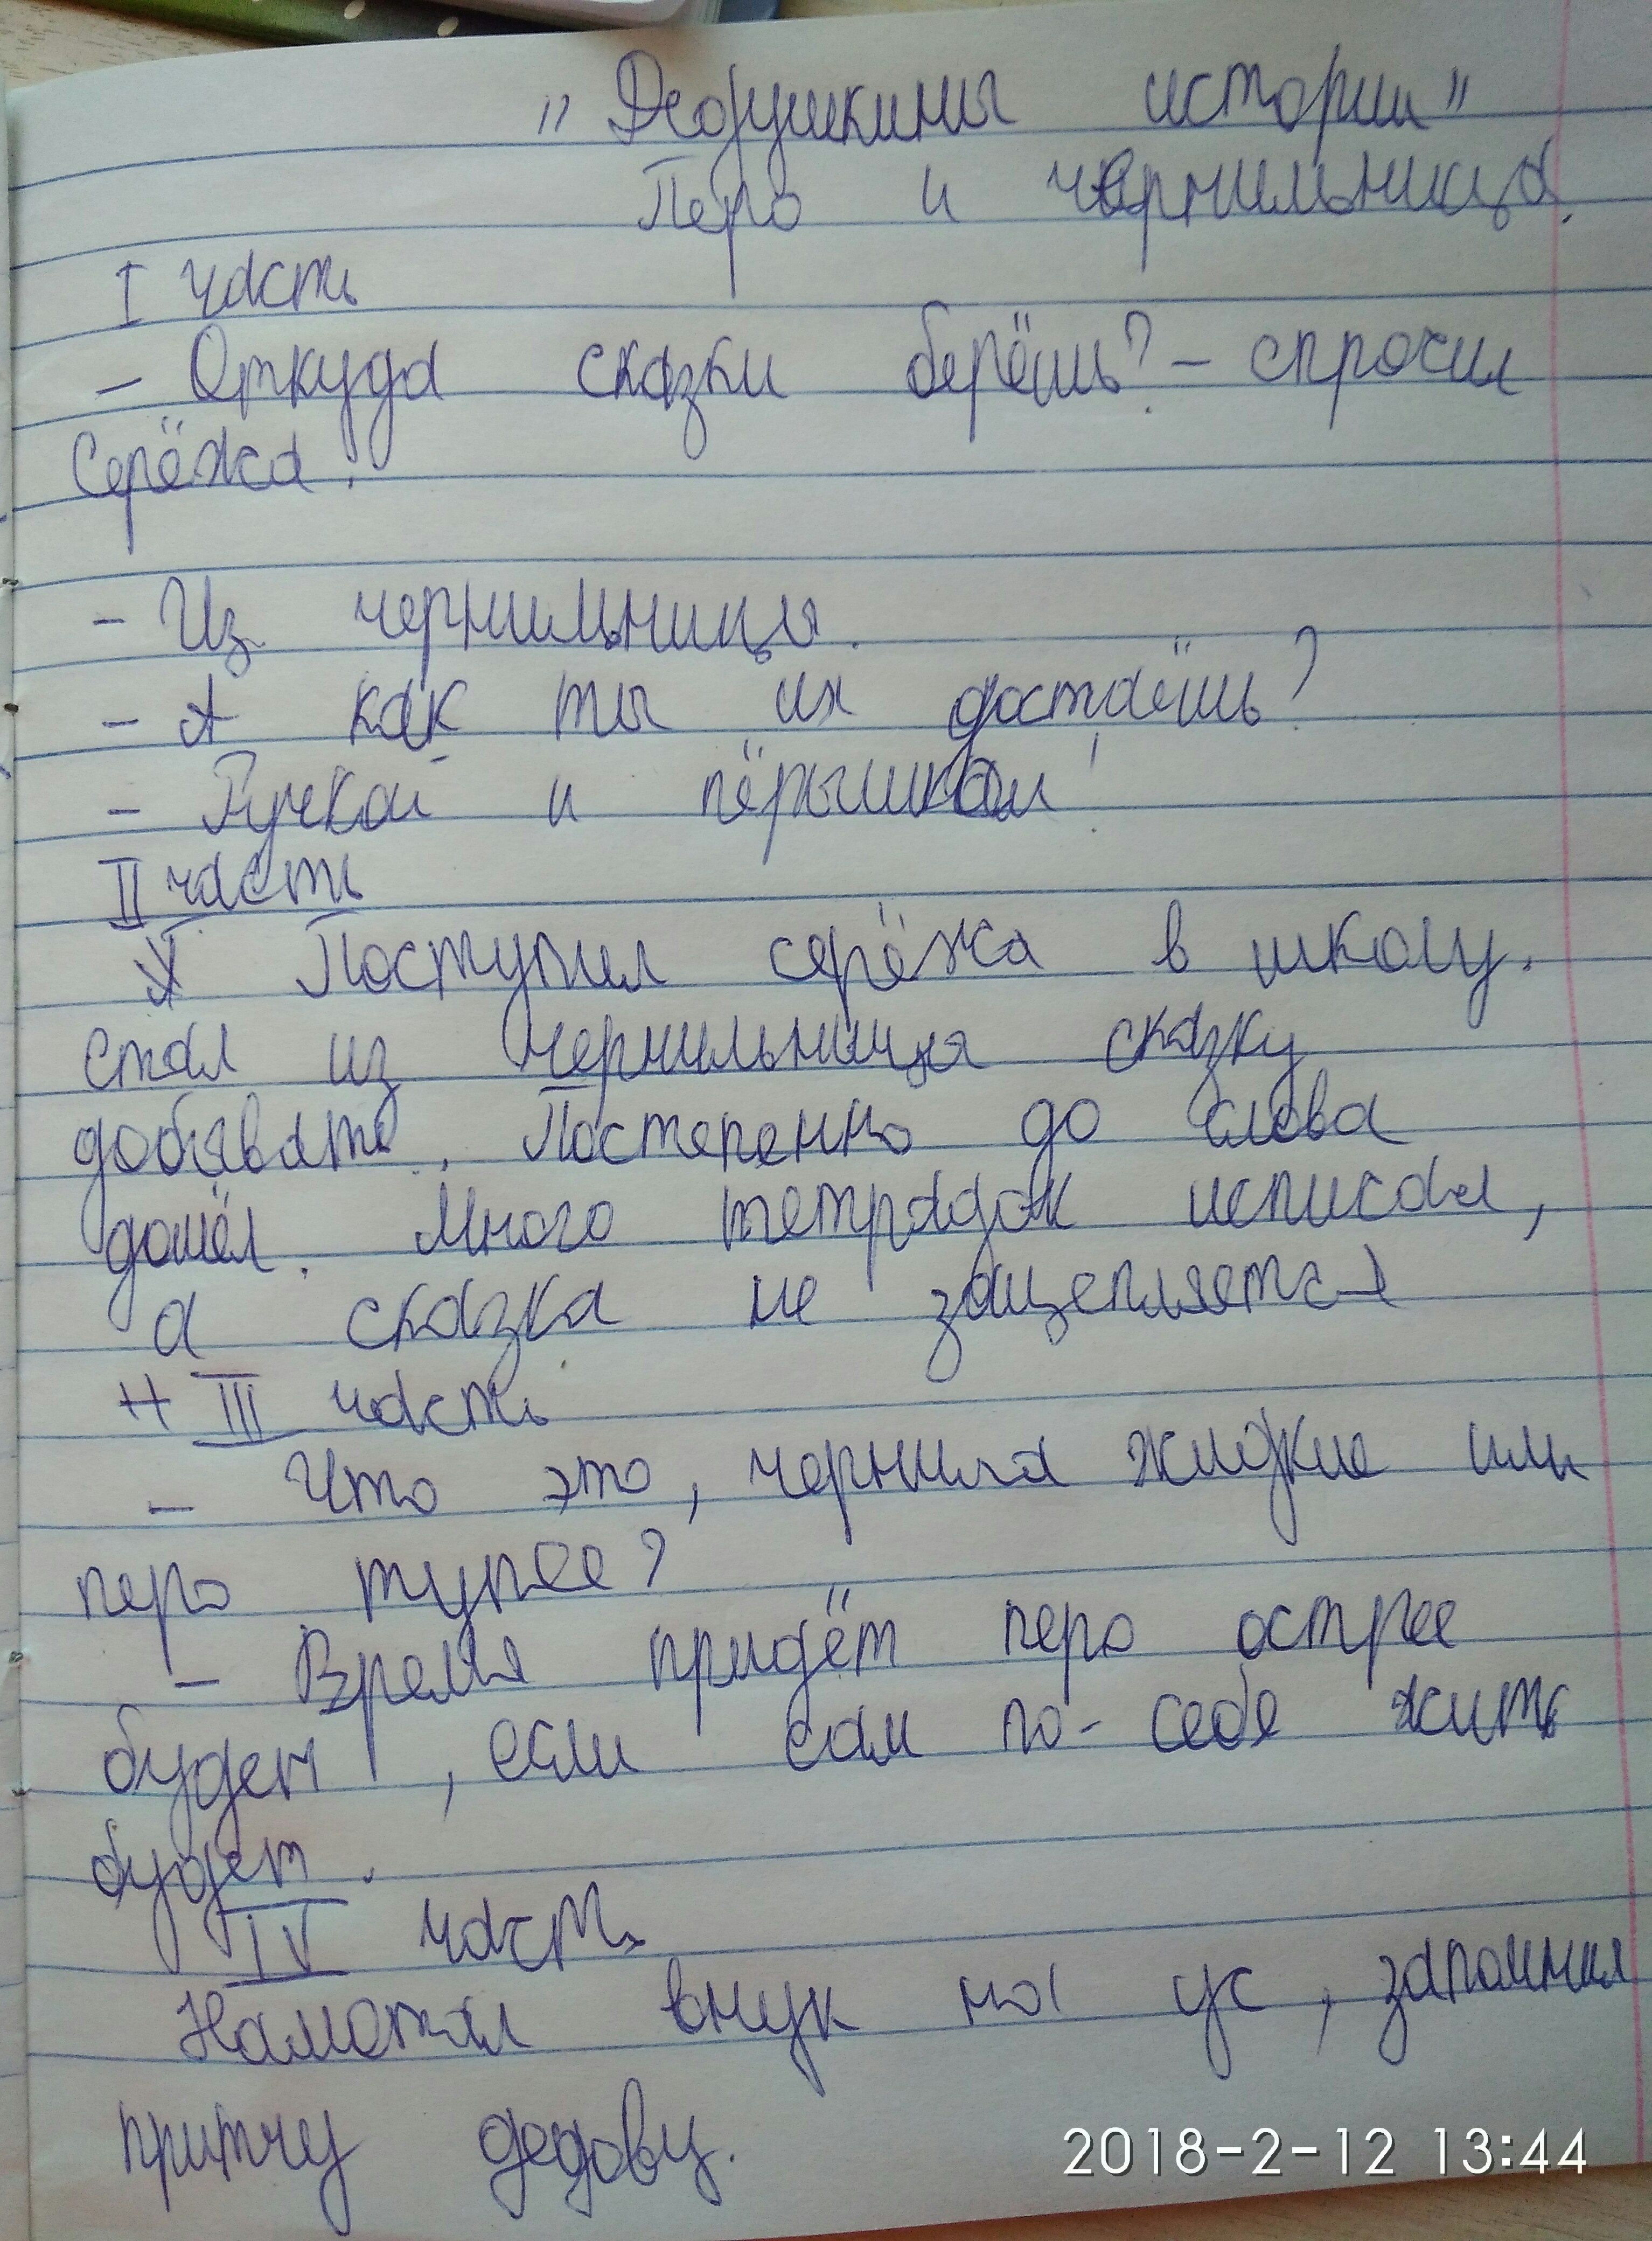 "Дедушкины истории"
Перо и чернильница.
I часть
- Откуда сказки берёшь? - спросил
Серёжа.
- Из чернильницы.
- А как ты их достаёшь?
- Ручкой и пёрышком!
II часть
Поступил серёжа в школу.
стал из чернильницы сказку
добывать. Постепенно до слова
дошёл. Много тетрадок исписал,
а сказка не зацепляется
III часть
- Что это, чернила жидкие или
перо тупее?
- Время придёт перо острее
будет, если сам по-себе жить
будет.
IV часть
Намотал внук на ус, запомнил
притчу дедову.
2018-2-12 13:44